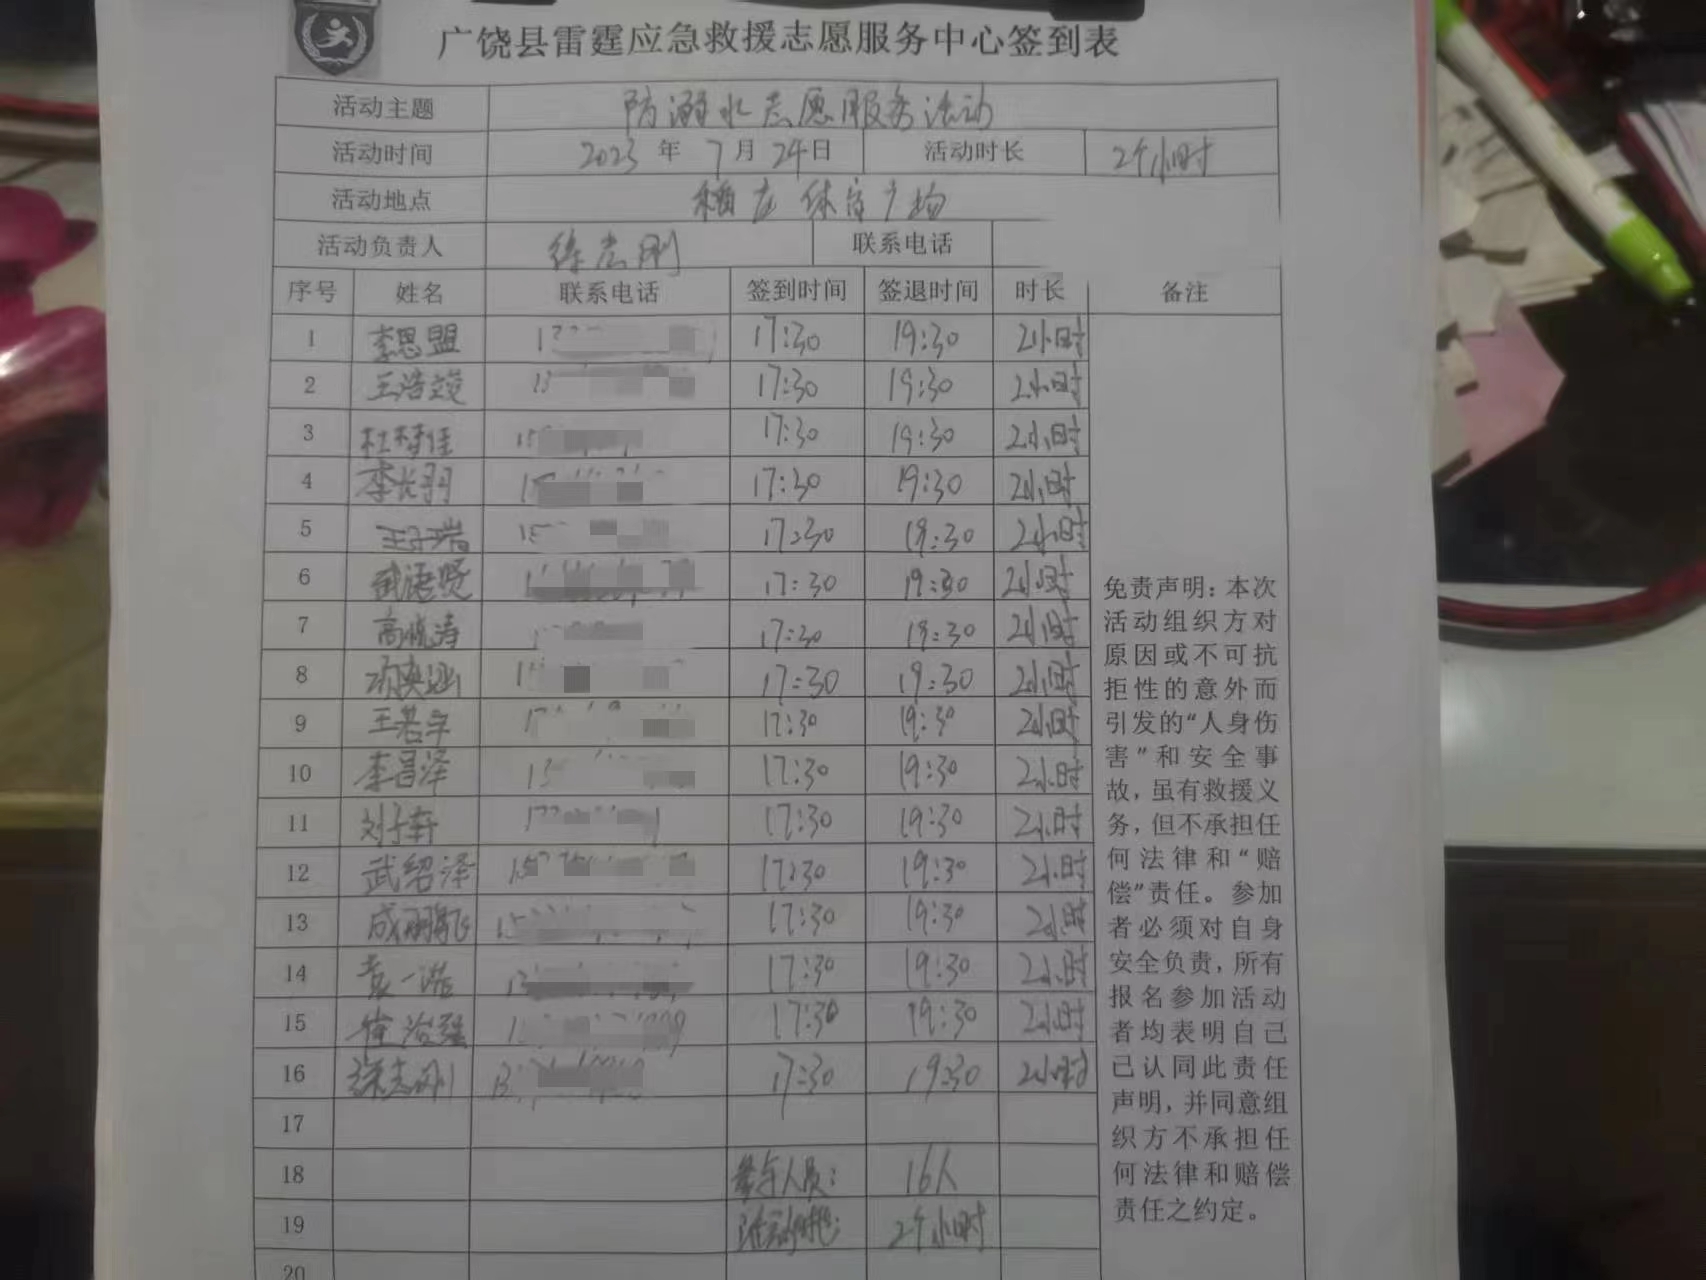 广饶县雷霆应急救援志愿服务中心签到表
活动主题 防溺水志愿服务活动
活动时间 2023年7月24日 活动时长 2个小时
活动地点 稻庄体育广场
活动负责人 徐志刚 联系电话
序号 姓名 联系电话 签到时间 签退时间 时长 备注
1 李思盟 17:30 19:30 2小时
2 王浩 17:30 19:30 2小时
3 杜梓佳 17:30 19:30 2小时
4 李长羽 17:30 19:30 2小时
5 王子瑞 17:30 19:30 2小时
6 武德贤 17:30 19:30 2小时
7 高晓涛 17:30 19:30 2小时
8 17:30 19:30 2小时
9 王若宇 17:30 19:30 2小时
10 李昌泽 17:30 19:30 2小时
11 刘子轩 17:30 19:30 2小时
12 武绍泽 17:30 19:30 2小时
13 成鹏飞 17:30 19:30 2小时
14 袁一诺 17:30 19:30 2小时
15 17:30 19:30 2小时
16 徐志刚 17:30 19:30 2小时
17
18 参与人员: 16人
19 活动时长: 2个小时
20
免责声明:本次
活动组织方对
原因或不可抗
拒性的意外而
引发的“人身伤
害”和安全事
故,虽有救援义
务,但不承担任
何法律和“赔
偿”责任。参加
者必须对自身
安全负责,所有
报名参加活动
者均表明自己
已认同此责任
声明,并同意组
织方不承担任
何法律和赔偿
责任之约定。